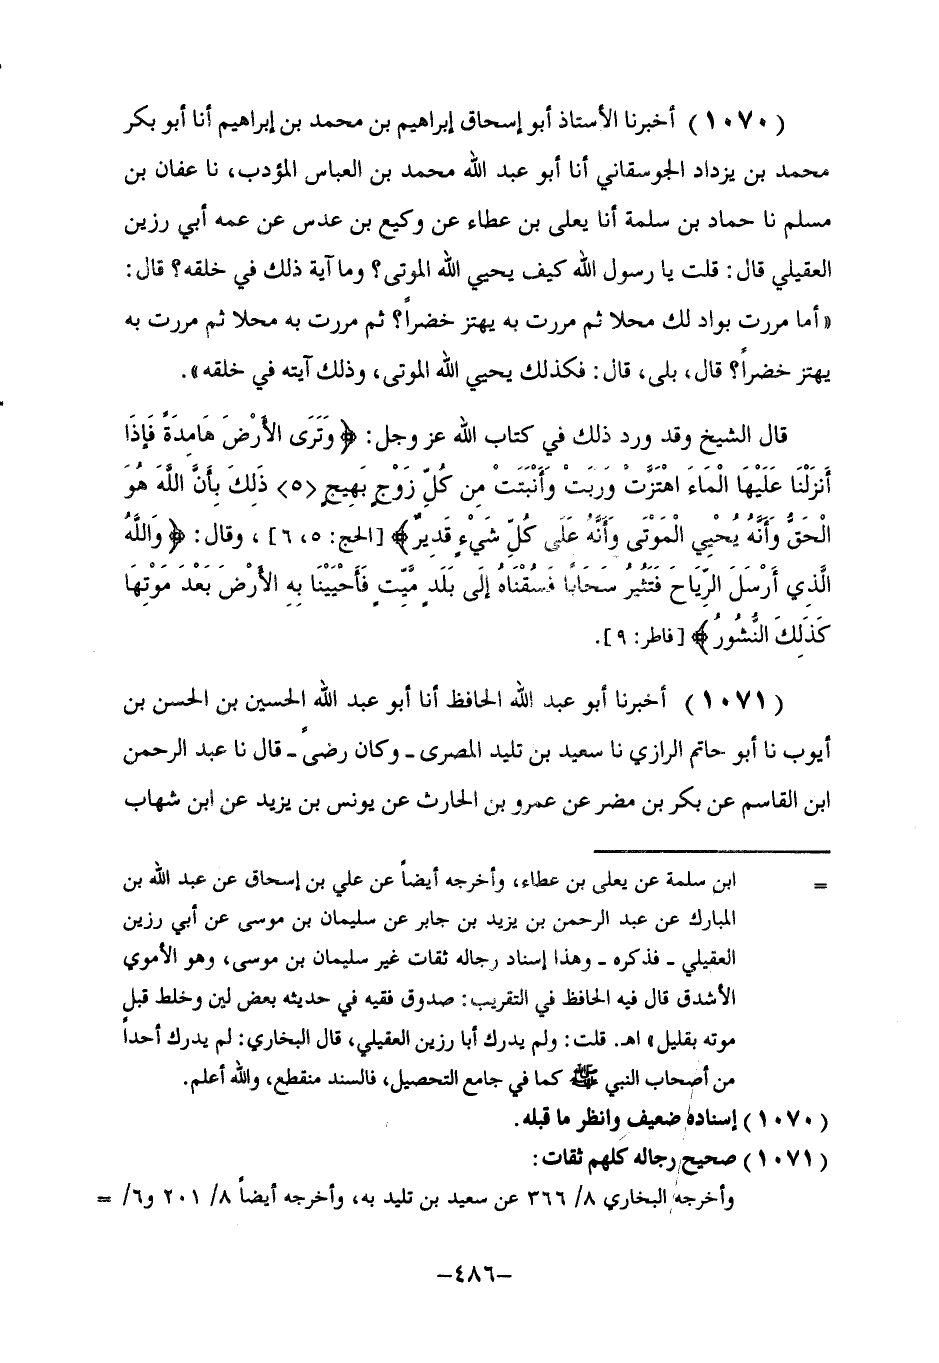 (١٠٧٠) أخبرنا الأستاذ أبو إسحاق إبراهيم بن محمد بن إبراهيم أنا أبو بكر
محمد بن يزداد الجوسقاني أنا أبو عبد الله محمد بن العباس المؤدب، نا عفان بن
مسلم نا حماد بن سلمة أنا يعلى بن عطاء عن وكيع بن عدس عن عمه أبي رزين
العقيلي قال: قلت يا رسول الله كيف يحيي الله الموتى؟ وما آية ذلك في خلقه؟ قال:
«أما مررت بواد لك محلا ثم مررت به يهتز خضراً؟ ثم مررت به محلا ثم مررت به
يهتز خضراً؟ قال، بلى، قال: فكذلك يحيي الله الموتى، وذلك آيته في خلقه».
قال الشيخ وقد ورد ذلك في كتاب الله عز وجل: ﴿وَتَرَى الأَرْضَ هَامِدَةً فَإِذَا
أَنزَلْنَا عَلَيْهَا الْمَاءَ اهْتَزَّتْ وَرَبَتْ وَأَنْبَتَتْ مِن كُلِّ زَوْجٍ بَهِيجٍ <٥> ذَلِكَ بِأَنَّ اللَّهَ هُوَ
الْحَقُّ وَأَنَّهُ يُحْيِي الْمَوْتَى وَأَنَّهُ عَلَى كُلِّ شَيْءٍ قَدِيرٌ﴾ [الحج: ٥، ٦]، وقال: ﴿وَاللَّهُ
الَّذِي أَرْسَلَ الرِّيَاحَ فَتُثِيرُ سَحَابًا فَسُقْنَاهُ إِلَى بَلَدٍ مَّيِّتٍ فَأَحْيَيْنَا بِهِ الأَرْضَ بَعْدَ مَوْتِهَا
كَذَلِكَ النُّشُورُ﴾ [فاطر: ٩].
(١٠٧١) أخبرنا أبو عبد الله الحافظ أنا أبو عبد الله الحسين بن الحسن بن
أيوب نا أبو حاتم الرازي نا سعيد بن تليد المصرى ـ وكان رضىً ـ قال نا عبد الرحمن
ابن القاسم عن بكر بن مضر عن عمرو بن الحارث عن يونس بن يزيد عن ابن شهاب
= ابن سلمة عن يعلى بن عطاء، وأخرجه أيضاً عن علي بن إسحاق عن عبد الله بن
المبارك عن عبد الرحمن بن يزيد بن جابر عن سليمان بن موسى عن أبي رزين
العقيلي ـ فذكره ـ وهذا إسناد رجاله ثقات غير سليمان بن موسى، وهو الأموي
الأشدق قال فيه الحافظ في التقريب: صدوق فقيه في حديثه بعض لين وخلط قبل
موته بقليل» اهـ. قلت: ولم يدرك أبا رزين العقيلي، قال البخاري: لم يدرك أحداً
من أصحاب النبي ﷺ كما في جامع التحصيل، فالسند منقطع، والله أعلم.
(١٠٧٠) إسناده ضعيف وانظر ما قبله.
(١٠٧١) صحيح رجاله كلهم ثقات:
وأخرجه البخاري ٨/ ٣٦٦ عن سعيد بن تليد به، وأخرجه أيضاً ٨/ ٢٠١ و٦/ =
–٤٨٦–